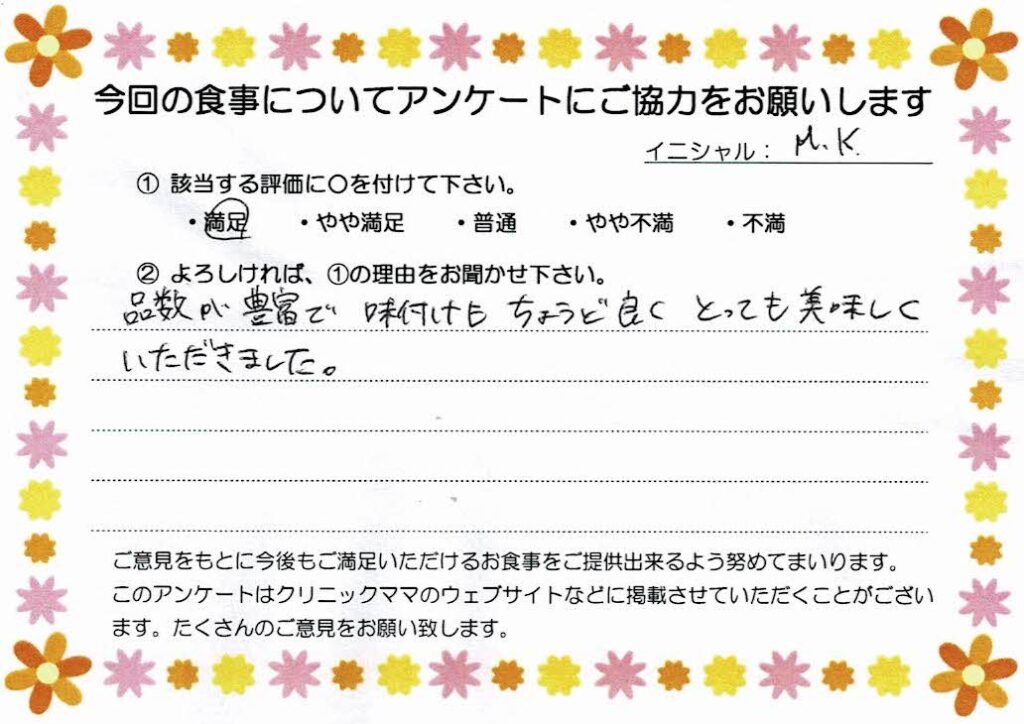 今回の食事についてアンケートにご協力をお願いします
イニシャル： M.K.
① 該当する評価に○を付けて下さい。
・満足 ・やや満足 ・普通 ・やや不満 ・不満
② よろしければ、①の理由をお聞かせ下さい。
品数が豊富で 味付けも ちょうど良く とっても美味しく
いただきました。
ご意見をもとに今後もご満足いただけるお食事をご提供出来るよう努めてまいります。
このアンケートはクリニックママのウェブサイトなどに掲載させていただくことがござい
ます。たくさんのご意見をお願い致します。